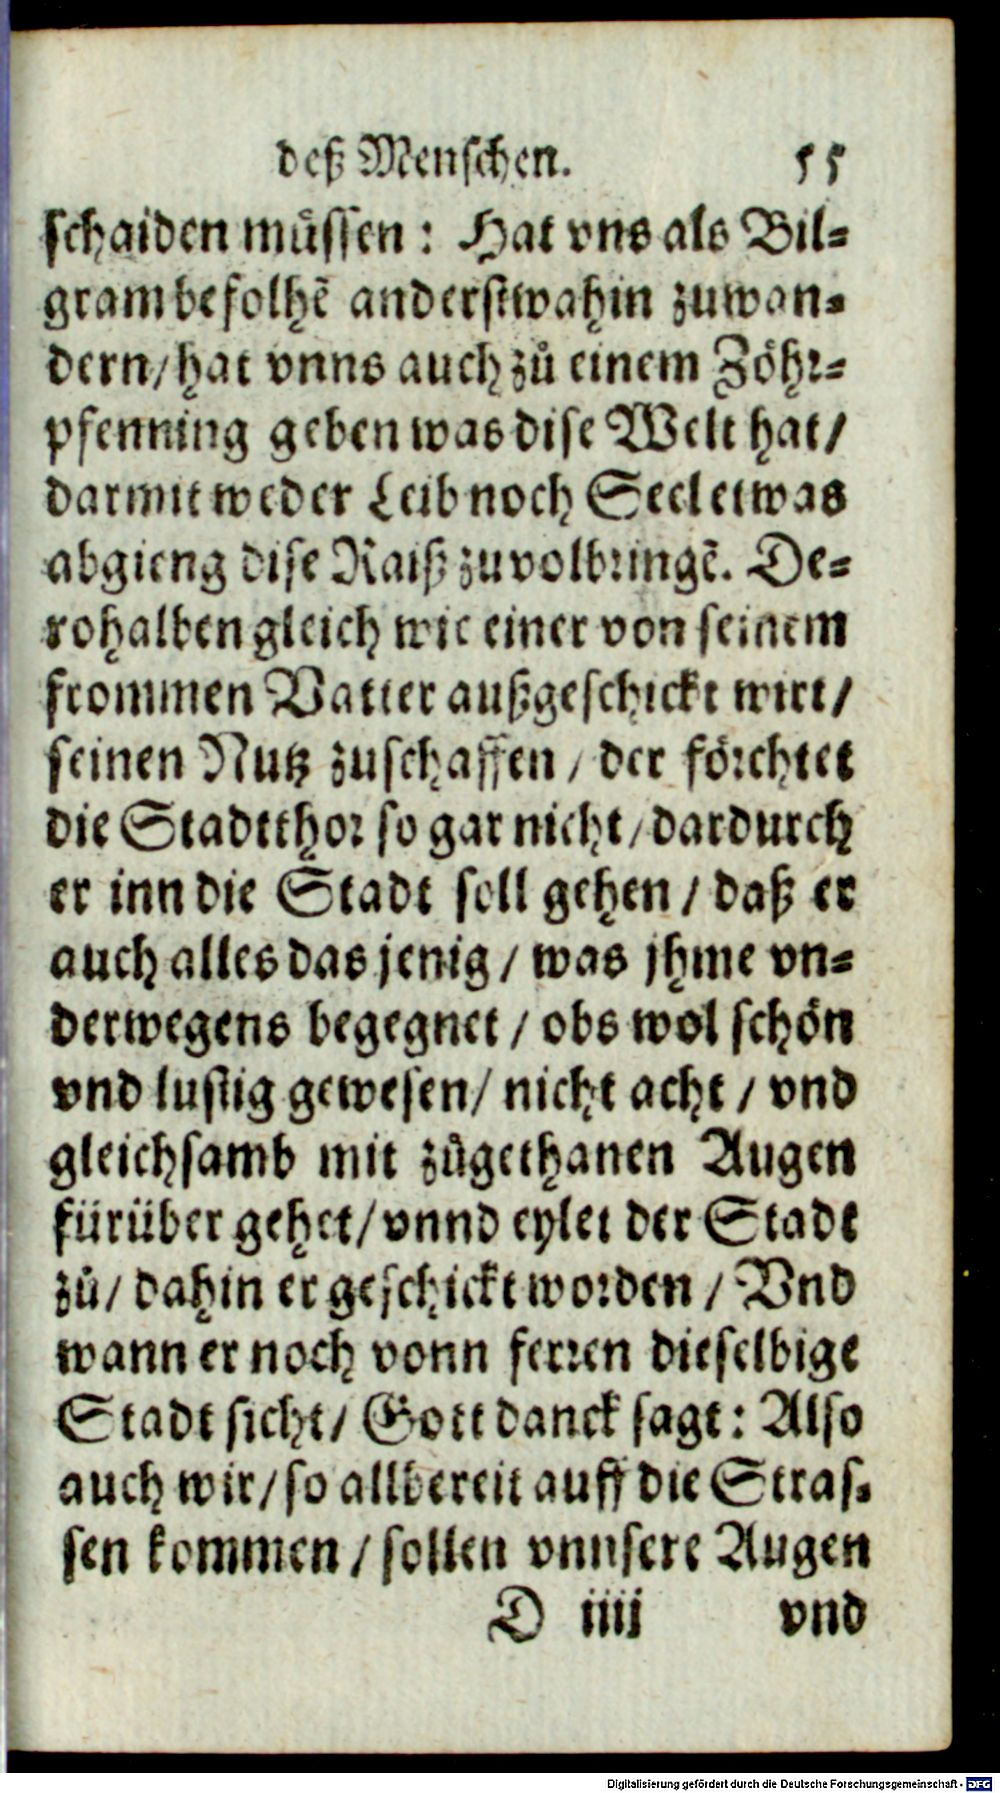 deß Menschen. 55
schaiden müssen: Hat vns als Bil-
gram befolhẽ anderstwahin zuwan-
dern/ hat vnns auch zů einem Zöhr-
pfenning geben was dise Welt hat/
darmit weder Leib noch Seel etwas
abgieng dise Raiß zuvolbringẽ. De-
rohalben gleich wie einer von seinem
frommen Vatter außgeschickt wirt/
seinen Nutz zuschaffen/ der förchtet
die Stadtthor so gar nicht/ dardurch
er inn die Stadt soll gehen/ daß er
auch alles das jenig/ was jhme vn-
derwegens begegnet/ obs wol schön
vnd lustig gewesen/ nicht acht/ vnd
gleichsamb mit zůgethanen Augen
fürüber gehet/ vnnd eylet der Stadt
zů/ dahin er geschickt worden/ Vnd
wann er noch vonn ferren dieselbige
Stadt sicht/ Gott danck sagt: Also
auch wir/ so allbereit auff die Stras-
sen kommen/ sollen vnnsere Augen
D iiij vnd
Digitalisierung gefördert durch die Deutsche Forschungsgemeinschaft - DFG